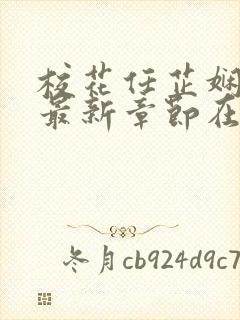 校花任芷娴
最新章节在
冬月cb924d9c7